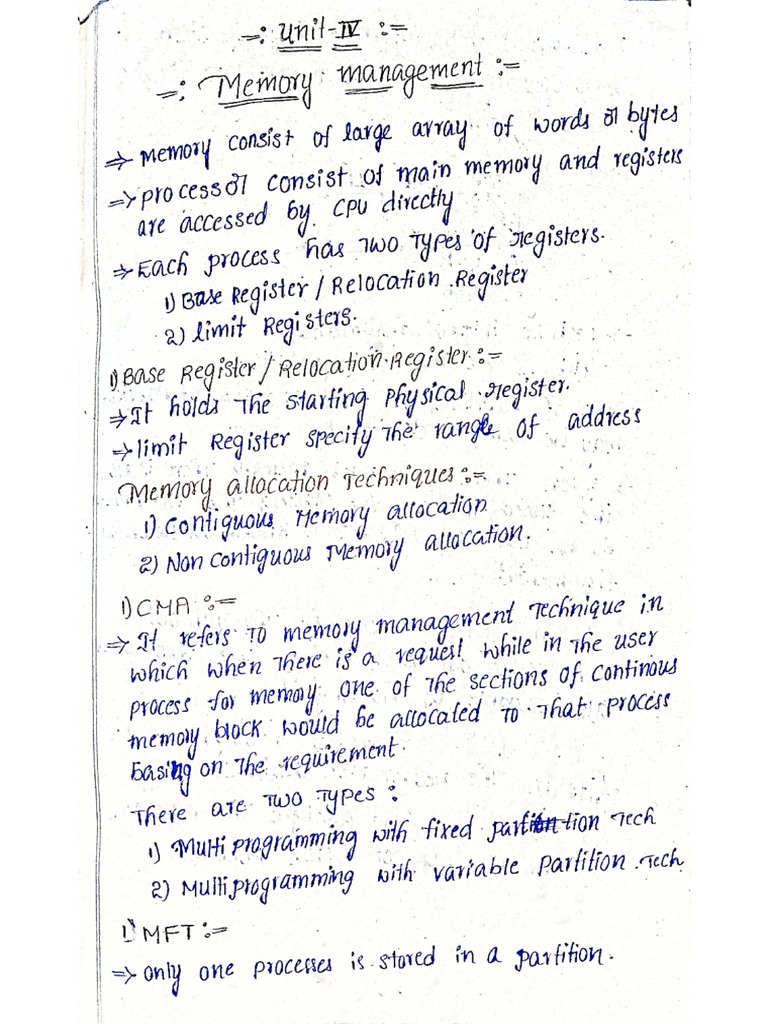 -: Unit-IV :-
-: Memory management :-
⇒ Memory consist of large array of words or bytes
⇒ processor consist of main memory and registers
are accessed by CPU directly
⇒ Each process has two types of registers.
1) Base Register / Relocation Register
2) limit Registers.
1) Base Register / Relocation Register :-
⇒ It holds the starting physical register.
⇒ limit Register specify the range of address
Memory allocation Techniques :-
1) contiguous Memory allocation
2) Non contiguous Memory allocation.
1) CMA :-
⇒ It refers to memory management technique in
which when there is a request while in the user
process for memory one of the sections of continous
memory block would be allocated to that process
basing on the requirement.
There are two types :
1) Multi programming with fixed partition Tech
2) Multiprogramming with variable partition Tech
1) MFT :-
⇒ only one processes is stored in a partition.